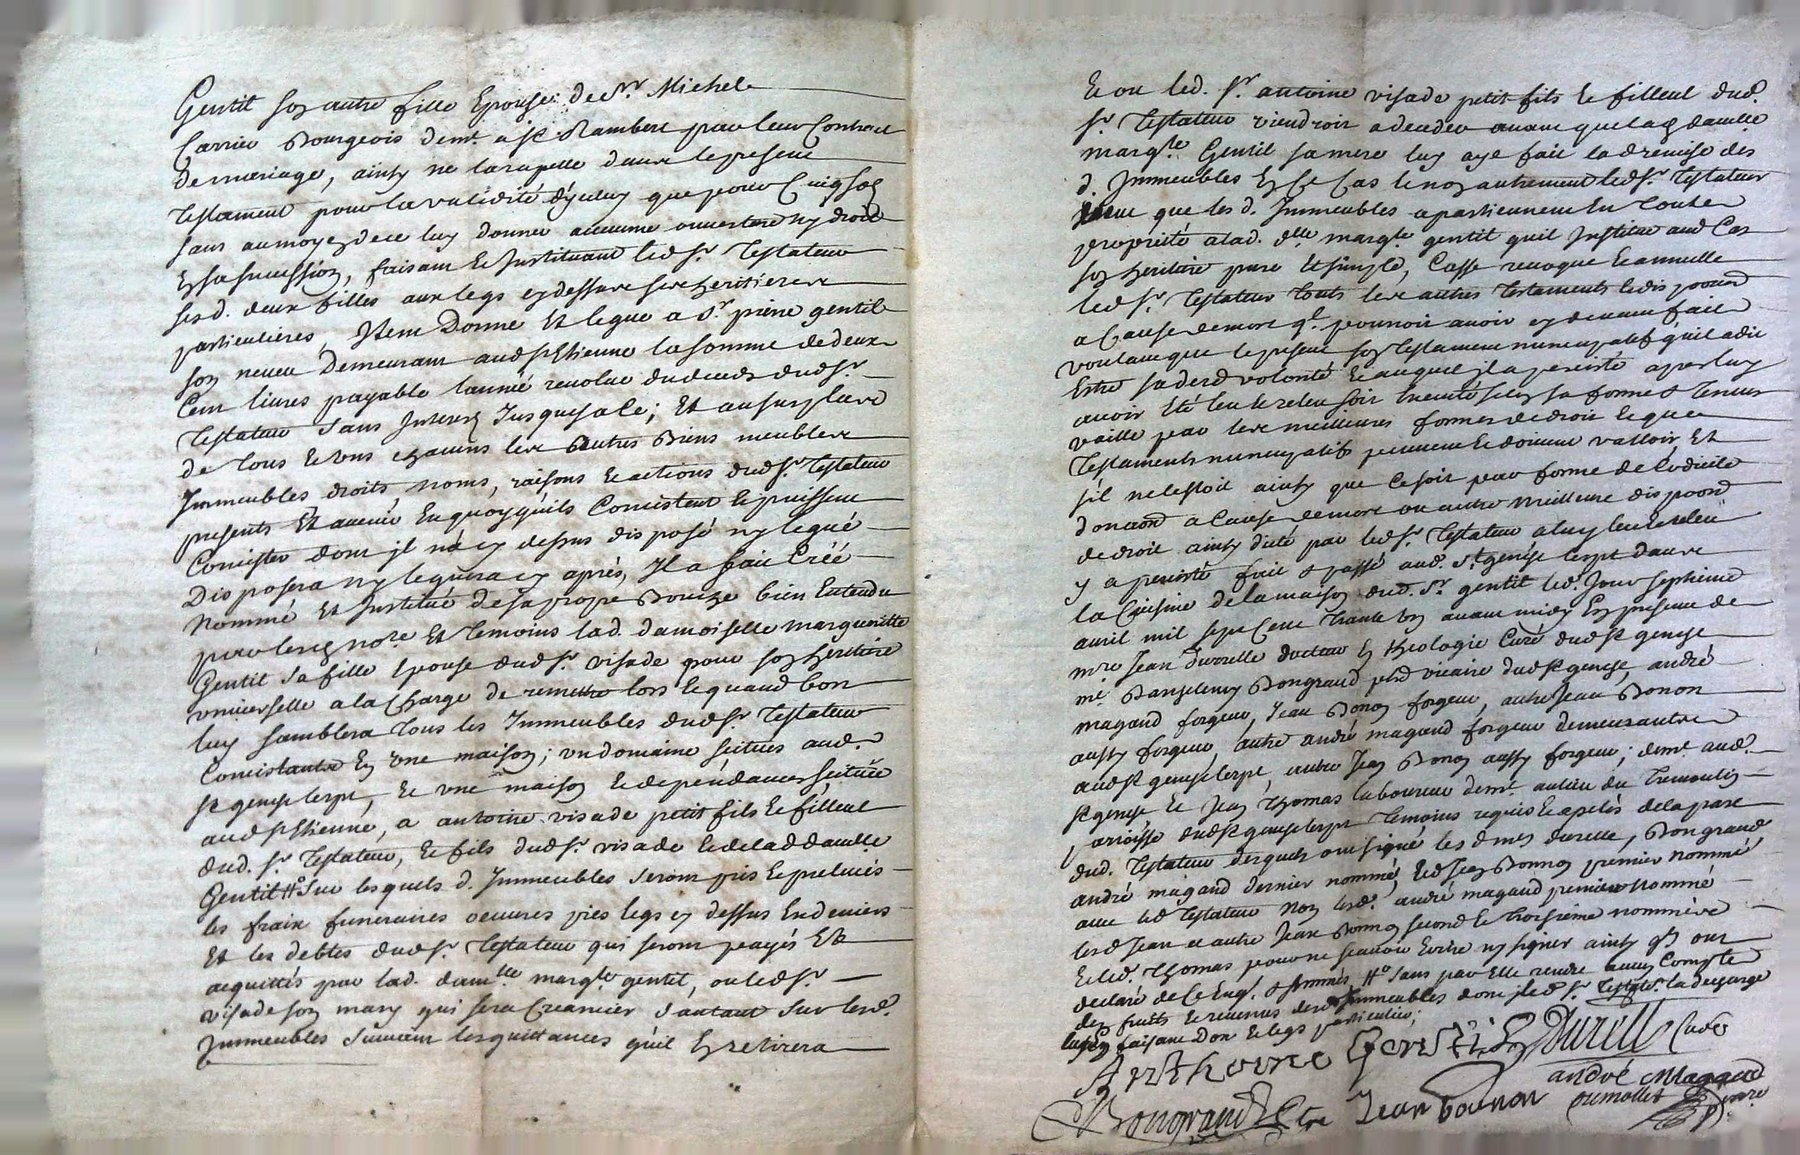 Gentil son autre fille Epouse de Sr. Michel
Carrier Bourgeois demt. a St Rambert par leur Contract
de mariage, ainsy ne la rapelle dans le present
Testament pour la validité d'yceluy que pour Cinq sols
sans au moyen de ce luy donner aucune ouverture ny droit
En sa succession, faisant Et Instituant led. Sr. Testateur
sesd. deux filles aux legs cy dessus ses heritieres
particulieres, Item Donne Et legue a Sr. pierre gentil
son neveu Demeurant aud St Etienne la somme de deux
Cent livres payable l'année revolue du deceds dud Sr.
Testateur sans Interest Jusques a ce; Et au surplus
de tous Et uns chacuns les autres Biens meubles
Immeubles droits, noms, raisons Et actions dud Sr. Testateur
presents Et avenir En quoy qu'ils Consistent Et puissent
Consister dont il n'a cy dessus disposé ny legué
Disposera ny leguera cy après, Il a fait Créé
Nommé Et Institué de sa propre Bouche bien Entendu
par lesd nore Et temoins lad. damoiselle margueritte
Gentil sa fille Epouse dud Sr. visade pour son heritiere
universelle a la Charge de remettre lors Et quand bon
luy semblera tous les Immeubles dud Sr Testateur
Consistants En une maison; un domaine scitués aud.
St genest lerpt, Et une maison Et dependances scituée
aud St Etienne, a antoine visade petit fils Et filleul
dud. Sr. Testateur, Et fils dud Sr. visade Et de lad damlle
Gentil # sur lesquels d. Immeubles seront pris Et prelevés
les fraix funeraires oeuvres pies legs cy dessus En deniers
Et les debtes dud Sr. Testateur qui seront payés Et
acquittés par lad. damlle margte gentil, ou led Sr.
visade son mary qui sera Creancier d'autant sur lesd.
Immeubles suivant les quittances qu'il En retirera
Et ou led. Sr. antoine visade petit fils Et filleul dud.
Sr. Testateur viendroit a deceder avant que lad damlle
margte. Gentil sa mere luy aye fait la remise des
d. Immeubles En Ce Cas Et non autrement led Sr. Testateur
veut que les d. Immeubles apartiennent En toute
propriété a lad. dlle margte gentil qu'il Institue aud Cas
son heritiere pure Et simple, Casse revoque Et annulle
led Sr. Testateur touts les autres testaments Et dispoond
a Cause de mort qe. pourroit avoir cy devant fait
voulant que le present son Testament nuncupatif qu'il a dit
Estre sa dere volonté Et auquel il a persisté apres luy
avoir Eté leu Et releu soit Executé selon sa forme & teneur
vaille par les meilleures formes de droit Et que
Testaments nuncupatifs peuvent Et doivent valloir Et
s'il ne lestoit ainsy que Ce soit par forme de Codicile
donaond a Cause de mort ou autre meilleure dispoond
de droit ainsy dicté par led Sr. Testateur a luy leu Et releu
y a persisté fait & passé aud. St. genest lerpt dans
la Cuisine de la maison dud. Sr. gentil led. Jour septieme
avril mil sept Cent trente un avant midy En presence de
mre Jean Durelle docteur En theologie Curé dud St genest
mre Bongrand prd vicaire dud St genest, andré
magand forgeur, Jean Bonon forgeur, autre Jean Bonon
aussy forgeur autre andré magand forgeur demeurants
aud St genest lerpt, autre Jean Bonon aussy forgeur; demt aud.
St genest Et Jean Thomas laboureur demt au lieu du Tremoulin
parroisse dud St genest lerpt Temoins requis Et apelés de la part
dud. Testateur desquels ont signé les d mes durelle, Bongrand
andré magand dernier nommé, led Jean Bonnon premier nommé
avec led Testateur Non lesd. andré magand premier nommé
lesd Jean et autre Jean Bonnon second Et troisieme nommés
Et led. Thomas pour ne sçavoir Ecrire ny signer ainsy qls ont
declaré de Ce Enqs. & sommés # sans par Elle rendre aucun Compte
des fruits Et revenus desd Immeubles dont led Sr. Testatr. la decharge
luy En faisant Don Et legs particulier;
Anthoine Gentil Durelle Curé
Bongrand Jean Bounon andré Magand